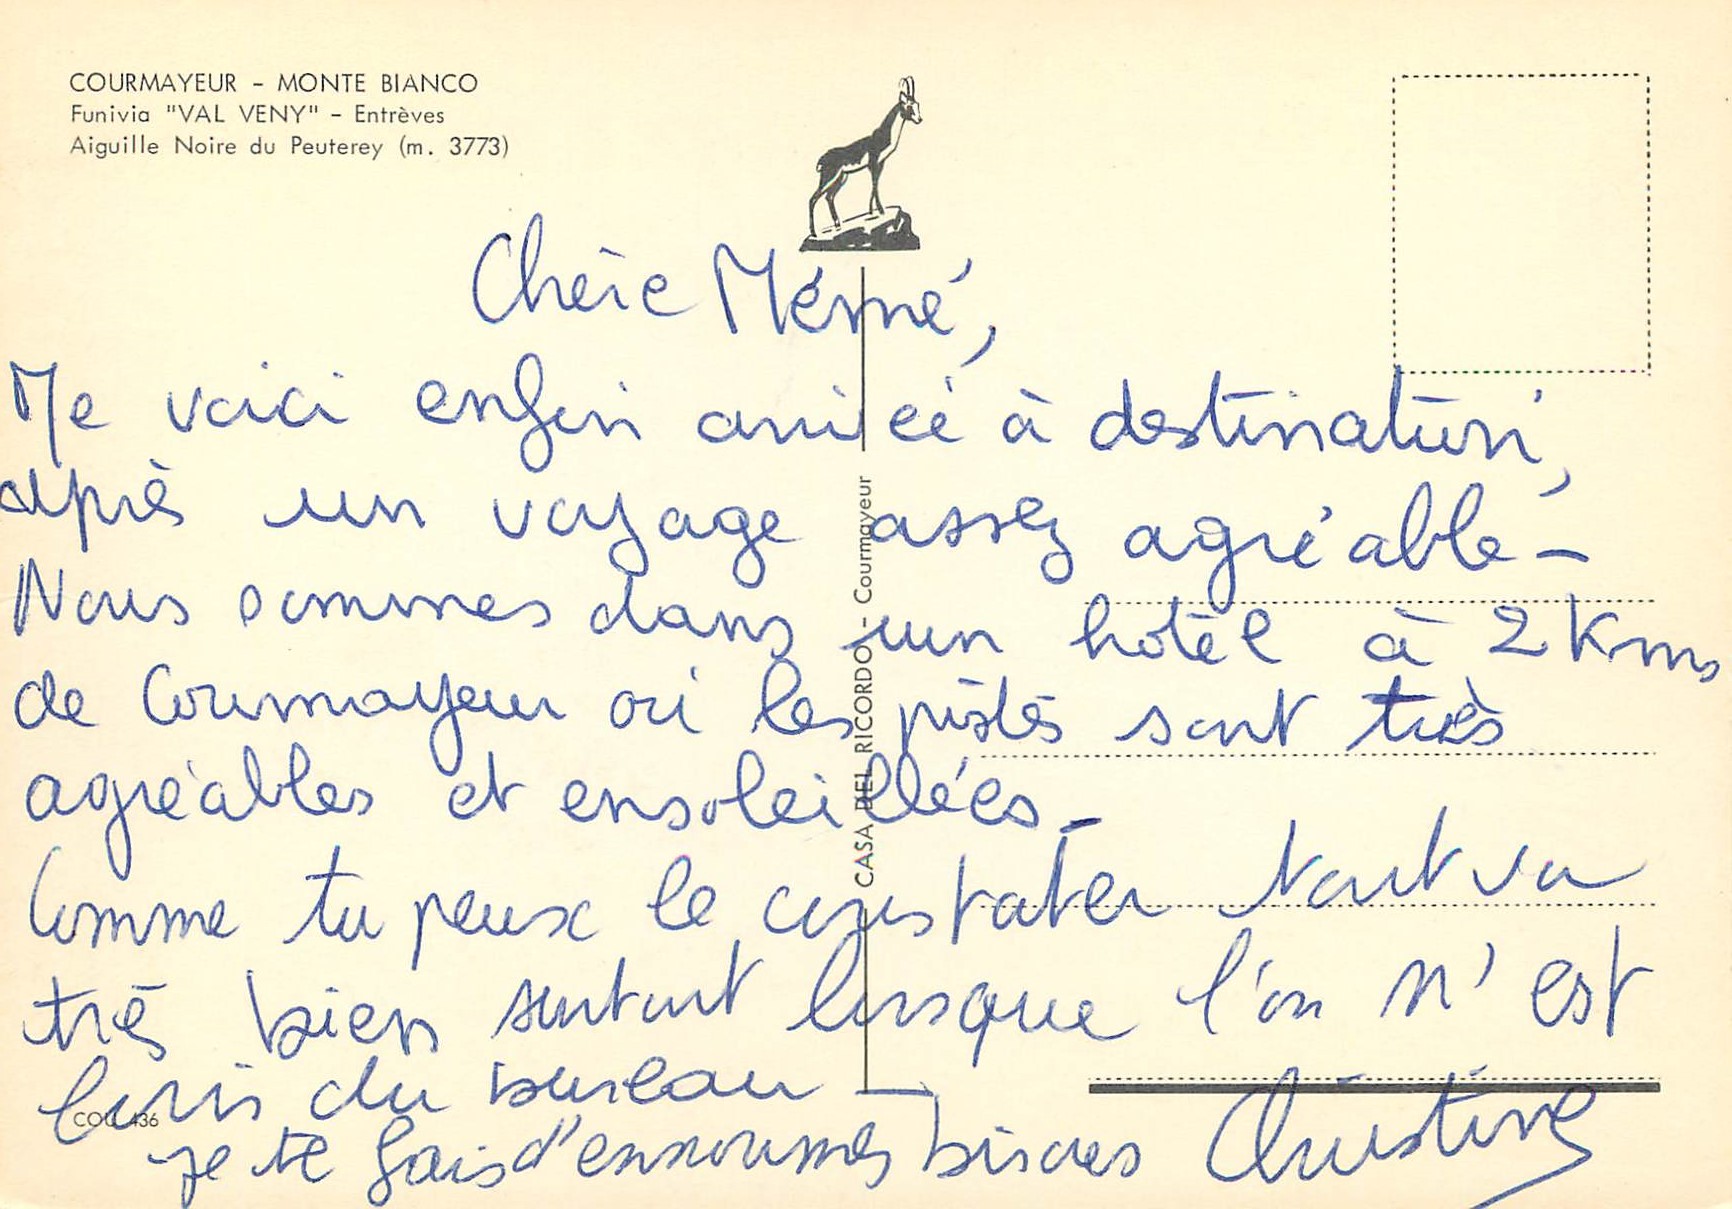 COURMAYEUR - MONTE BIANCO
Funivia "VAL VENY" - Entrèves
Aiguille Noire du Peuterey (m. 3773)
Chère Mémé,
Me voici enfin arrivée à destination,
après un voyage assez agréable -
Nous sommes dans un hôtel à 2 Kms
de Courmayeur où les pistes sont très
agréables et ensoleillées -
Comme tu peux le constater tout va
très bien surtout lorsque l'on n'est
loin du bureau -
je te fais d'ennoumes bisoues Christine
CASA DEL RICORDO - Courmayeur
COU 436